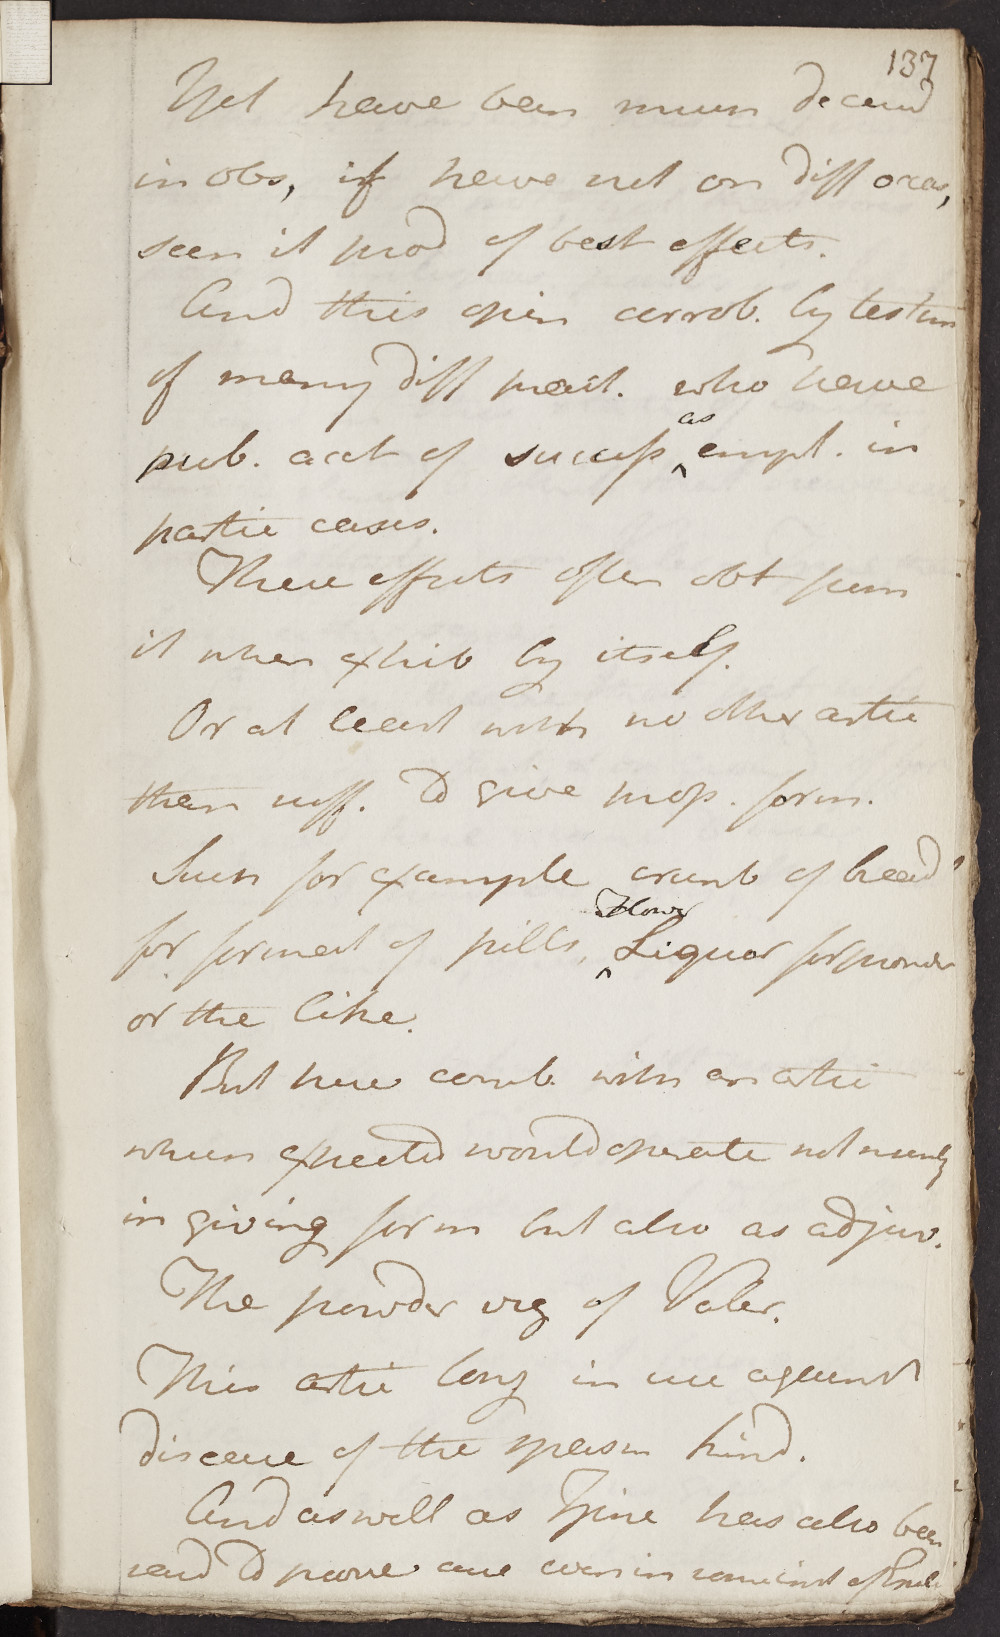 137
Yet have been much deceivd
in obs, if have not on diff occas,
seen it prod of best effects.
And this opin corrob. by testim
of many diff pract. who have
pub. acct of success as empl. in
partic cases.
These effects often obt from
it when exhib by itself.
Or at least with no other artic
than suff. to give prop. form.
Such for example crumb of bread
for format of pills, Flower Liquor for powder
or the like.
But here comb. with an artic
which expected would operate not merely
in giving form but also as adjuv.
The powder viz of Valer.
This artic long in use against
disease of the spasm kind.
And as well as Zinc has also been
said to prove cure even in